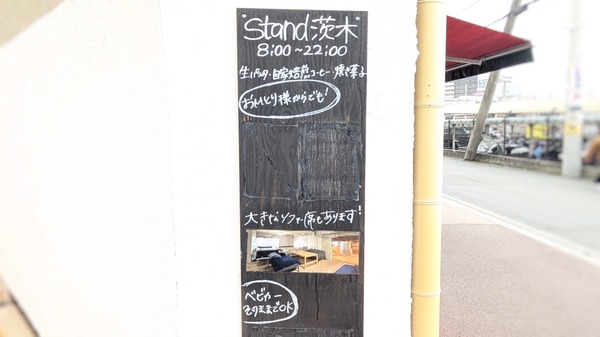 "Stand茨木"
8:00～22:00
生パスタ・自家焙煎コーヒー・焼き菓子
おひとり様からでも!
大きなソファー席もあります!
ベビカー
そのままでOK